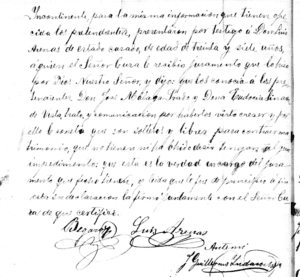 Incontinente para la misma informacion que tienen ofre-
cida los pretendientes, presentaron por testigo a Don Luis
Arenas de estado casado, de edad de treinta y siete años,
a quien el Señor Cura le recibio juramento que lo hizo
por Dios Nuestro Señor, y dijo: que los conoce a los pre-
tendientes Don José Málaga Prado y Doña
de vista, trato, y comunicacion por haberlos visto crecer y por
ello le consta que son solteros y libres para contraer ma-
trimonio, que no tienen ni ha obstado
impedimento: que esta es la verdad en cargo del jura-
mento que
esta su declaracion la firmó juntamente con el Señor Cu-
ra de que certifico.
Luis Arenas
Antemi
J. Guillermo